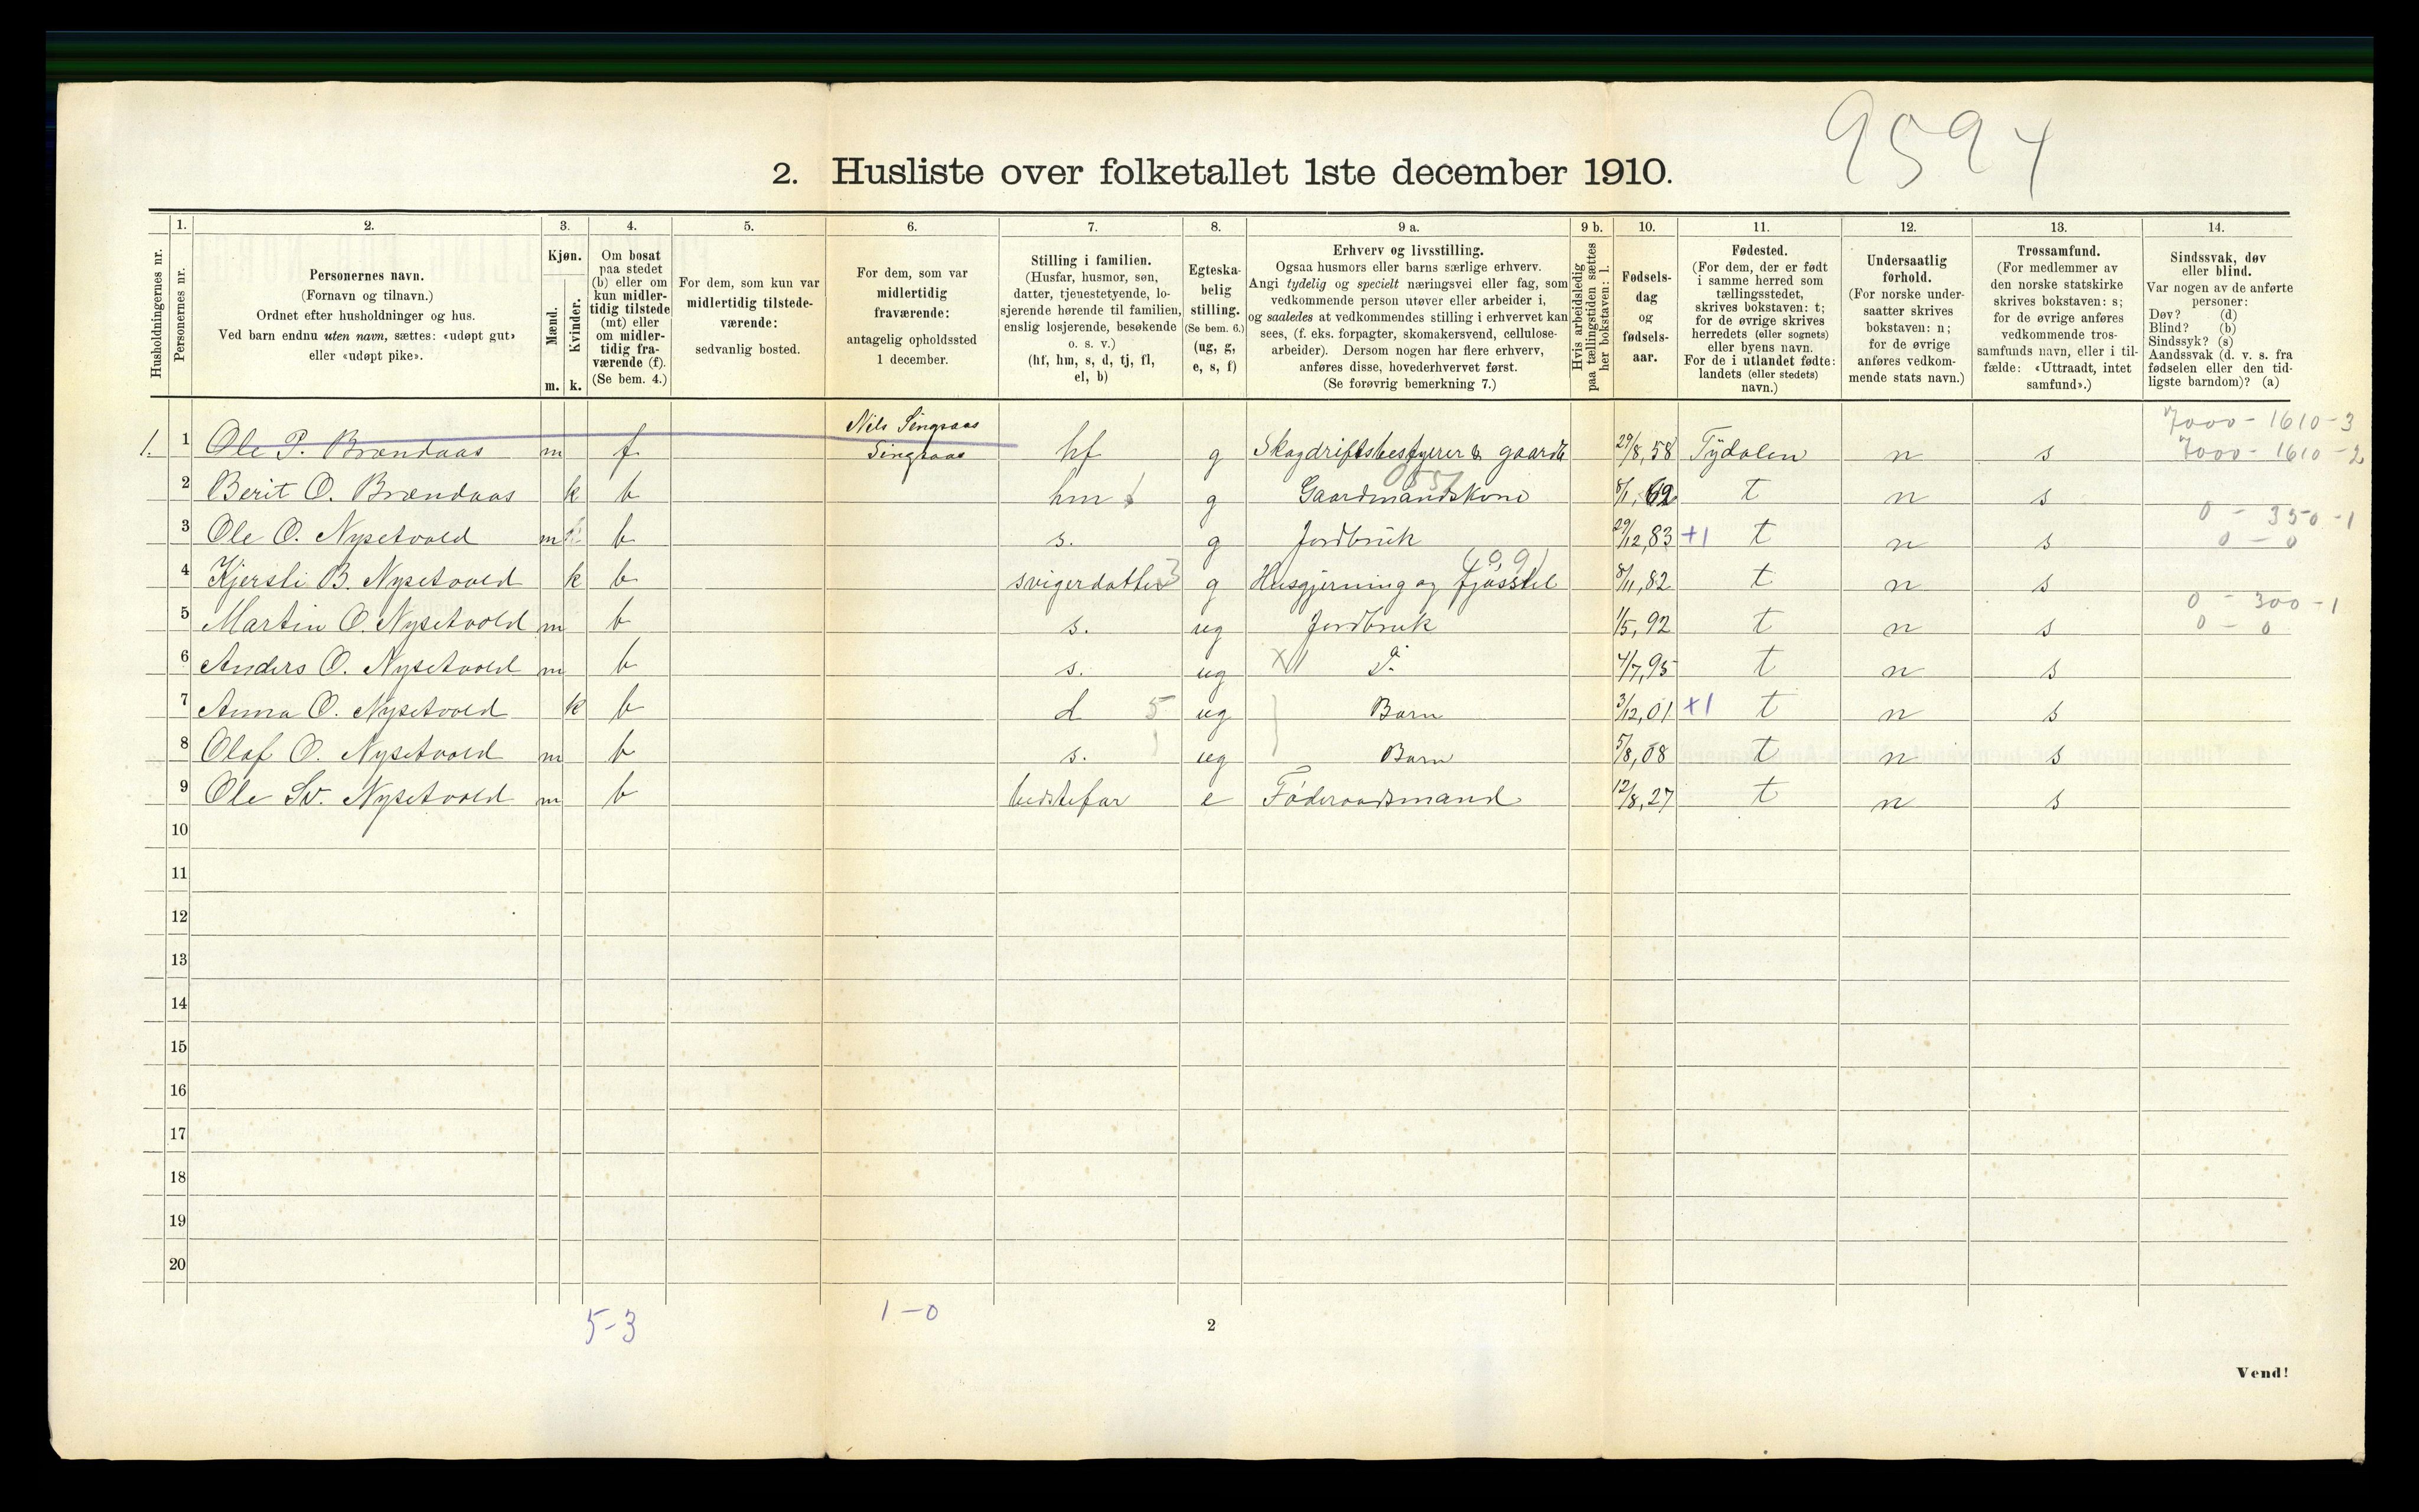 9594
2. Husliste over folketallet 1ste december 1910.
1. 2. 3. 4. 5. 6. 7. 8. 9 a. 9 b. 10. 11. 12. 13. 14.
Husholdningernes nr.
Personernes nr.
Personernes navn.
(Fornavn og tilnavn.)
Ordnet efter husholdninger og hus.
Ved barn endnu uten navn, sættes: «udøpt gut»
eller «udøpt pike».
Kjøn.
Mænd.
Kvinder.
m. k.
Om bosat
paa stedet
(b) eller om
kun midler-
tidig tilstede
(mt) eller
om midler-
tidig fra-
værende (f).
(Se bem. 4.)
For dem, som kun var
midlertidig tilstede-
værende:
sedvanlig bosted.
For dem, som var
midlertidig
fraværende:
antagelig opholdssted
1 december.
Stilling i familien.
(Husfar, husmor, søn,
datter, tjenestetyende, lo-
sjerende hørende til familien,
enslig losjerende, besøkende
o. s. v.)
(hf, hm, s, d, tj, fl,
el, b)
Egteska-
belig
stilling.
(Se bem. 6.)
(ug, g,
e, s, f)
Erhverv og livsstilling.
Ogsaa husmors eller barns særlige erhverv.
Angi tydelig og specielt næringsvei eller fag, som
vedkommende person utøver eller arbeider i,
og saaledes at vedkommendes stilling i erhvervet kan
sees, (f. eks. forpagter, skomakersvend, cellulose-
arbeider). Dersom nogen har flere erhverv,
anføres disse, hovederhvervet først.
(Se forøvrig bemerkning 7.)
Hvis arbeidsledig
paa tællingstiden sættes
her bokstaven: l.
Fødsels-
dag
og
fødsels-
aar.
Fødested.
(For dem, der er født
i samme herred som
tællingsstedet,
skrives bokstaven: t;
for de øvrige skrives
herredets (eller sognets)
eller byens navn.
For de i utlandet fødte:
landets (eller stedets)
navn.)
Undersaatlig
forhold.
(For norske under-
saatter skrives
bokstaven: n;
for de øvrige
anføres vedkom-
mende stats navn.)
Trossamfund.
(For medlemmer av
den norske statskirke
skrives bokstaven: s;
for de øvrige anføres
vedkommende tros-
samfunds navn, eller i til-
fælde: «Uttraadt, intet
samfund».)
Sindssvak, døv
eller blind.
Var nogen av de anførte
personer:
Døv? (d)
Blind? (b)
Sindssyk? (s)
Aandssvak (d. v. s. fra
fødselen eller den tid-
ligste barndom)? (a)
Nils Singsaas 7000 - 1610 - 3
1. 1 Ole P. Brændaas m f Singsaas hf g Skogdriftsbestyrer & gaardb 29/8, 58 Tydalen n s 7000 - 1610 - 2
0551
2 Berit O. Brændaas k b hm g Gaardmandskone 8/1, 62 t n s
0 - 350 - 1
3 Ole O. Nysetvold m b s. g Jordbruk 29/12, 83 +1 t n s 0 - 0
4 Kjersti B. Nysetvold k b svigerdatter 3 g Husgjerning og fjøsstel 8/11, 82 t n s
0 - 300 - 1
5 Martin O. Nysetvold m b s. ug Jordbruk 1/5, 92 t n s 0 - 0
6 Anders O. Nysetvold m b s. ug x1 Do 4/7, 95 t n s
7 Anna O. Nysetvold k b d 5 ug Barn 3/12, 01 +1 t n s
8 Olaf O. Nysetvold m b s. 1 ug Barn 5/8, 08 t n s
9 Ole Sv. Nysetvold m b bedstefar e Føderaadsmand 12/8, 27 t n s
10
11
12
13
14
15
16
17
18
19
20
5-3 1-0
2
Vend!